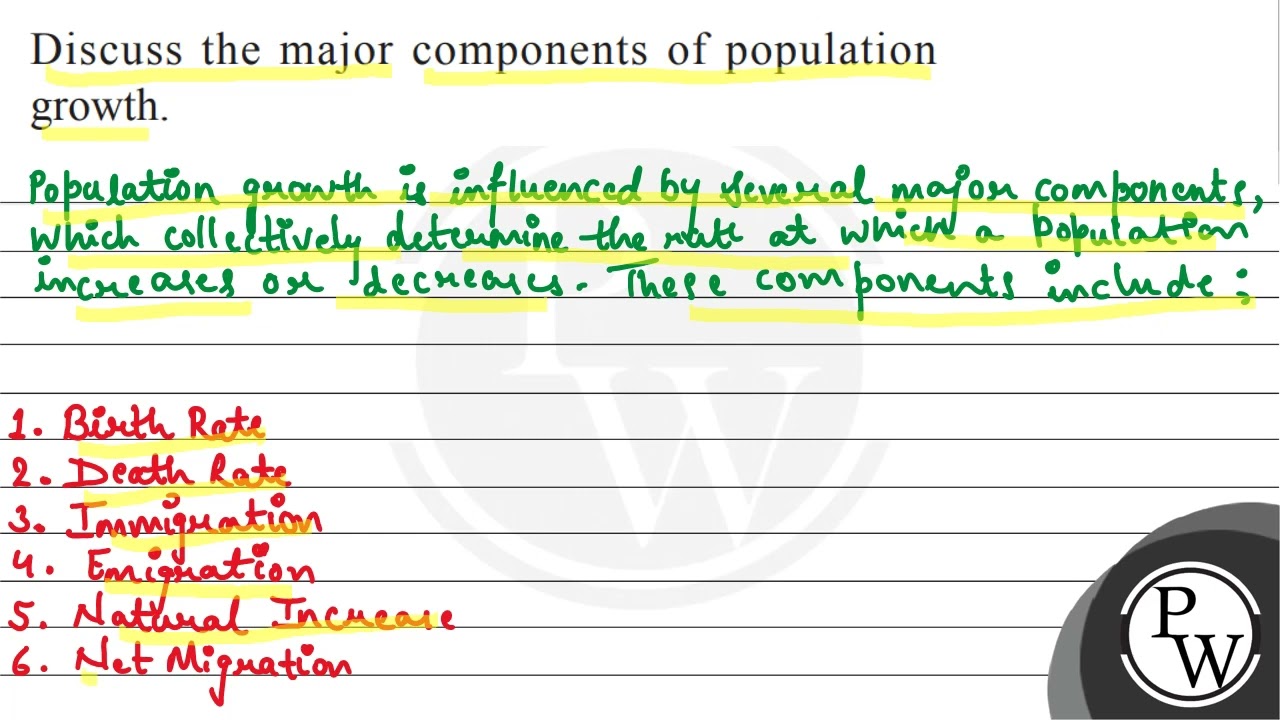 Discuss the major components of population
growth.
Population growth is influenced by several major components,
which collectively determine the rate at which a Population
increases or decreases. These components include :
1. Birth Rate
2. Death Rate
3. Immigration
4. Emigration
5. Natural Increase
6. Net Migration
P
W
PW